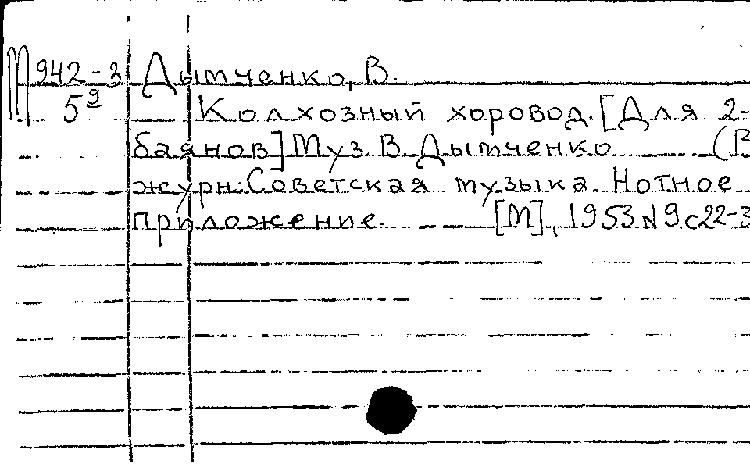 М 942-3 Дымченко, В.
5⁹ Колхозный хоровод. [Для 2-
баянов] Муз. В. Дымченко (В
журн. Советская музыка. Нотное
приложение. [М], 1953 N9 с22-3